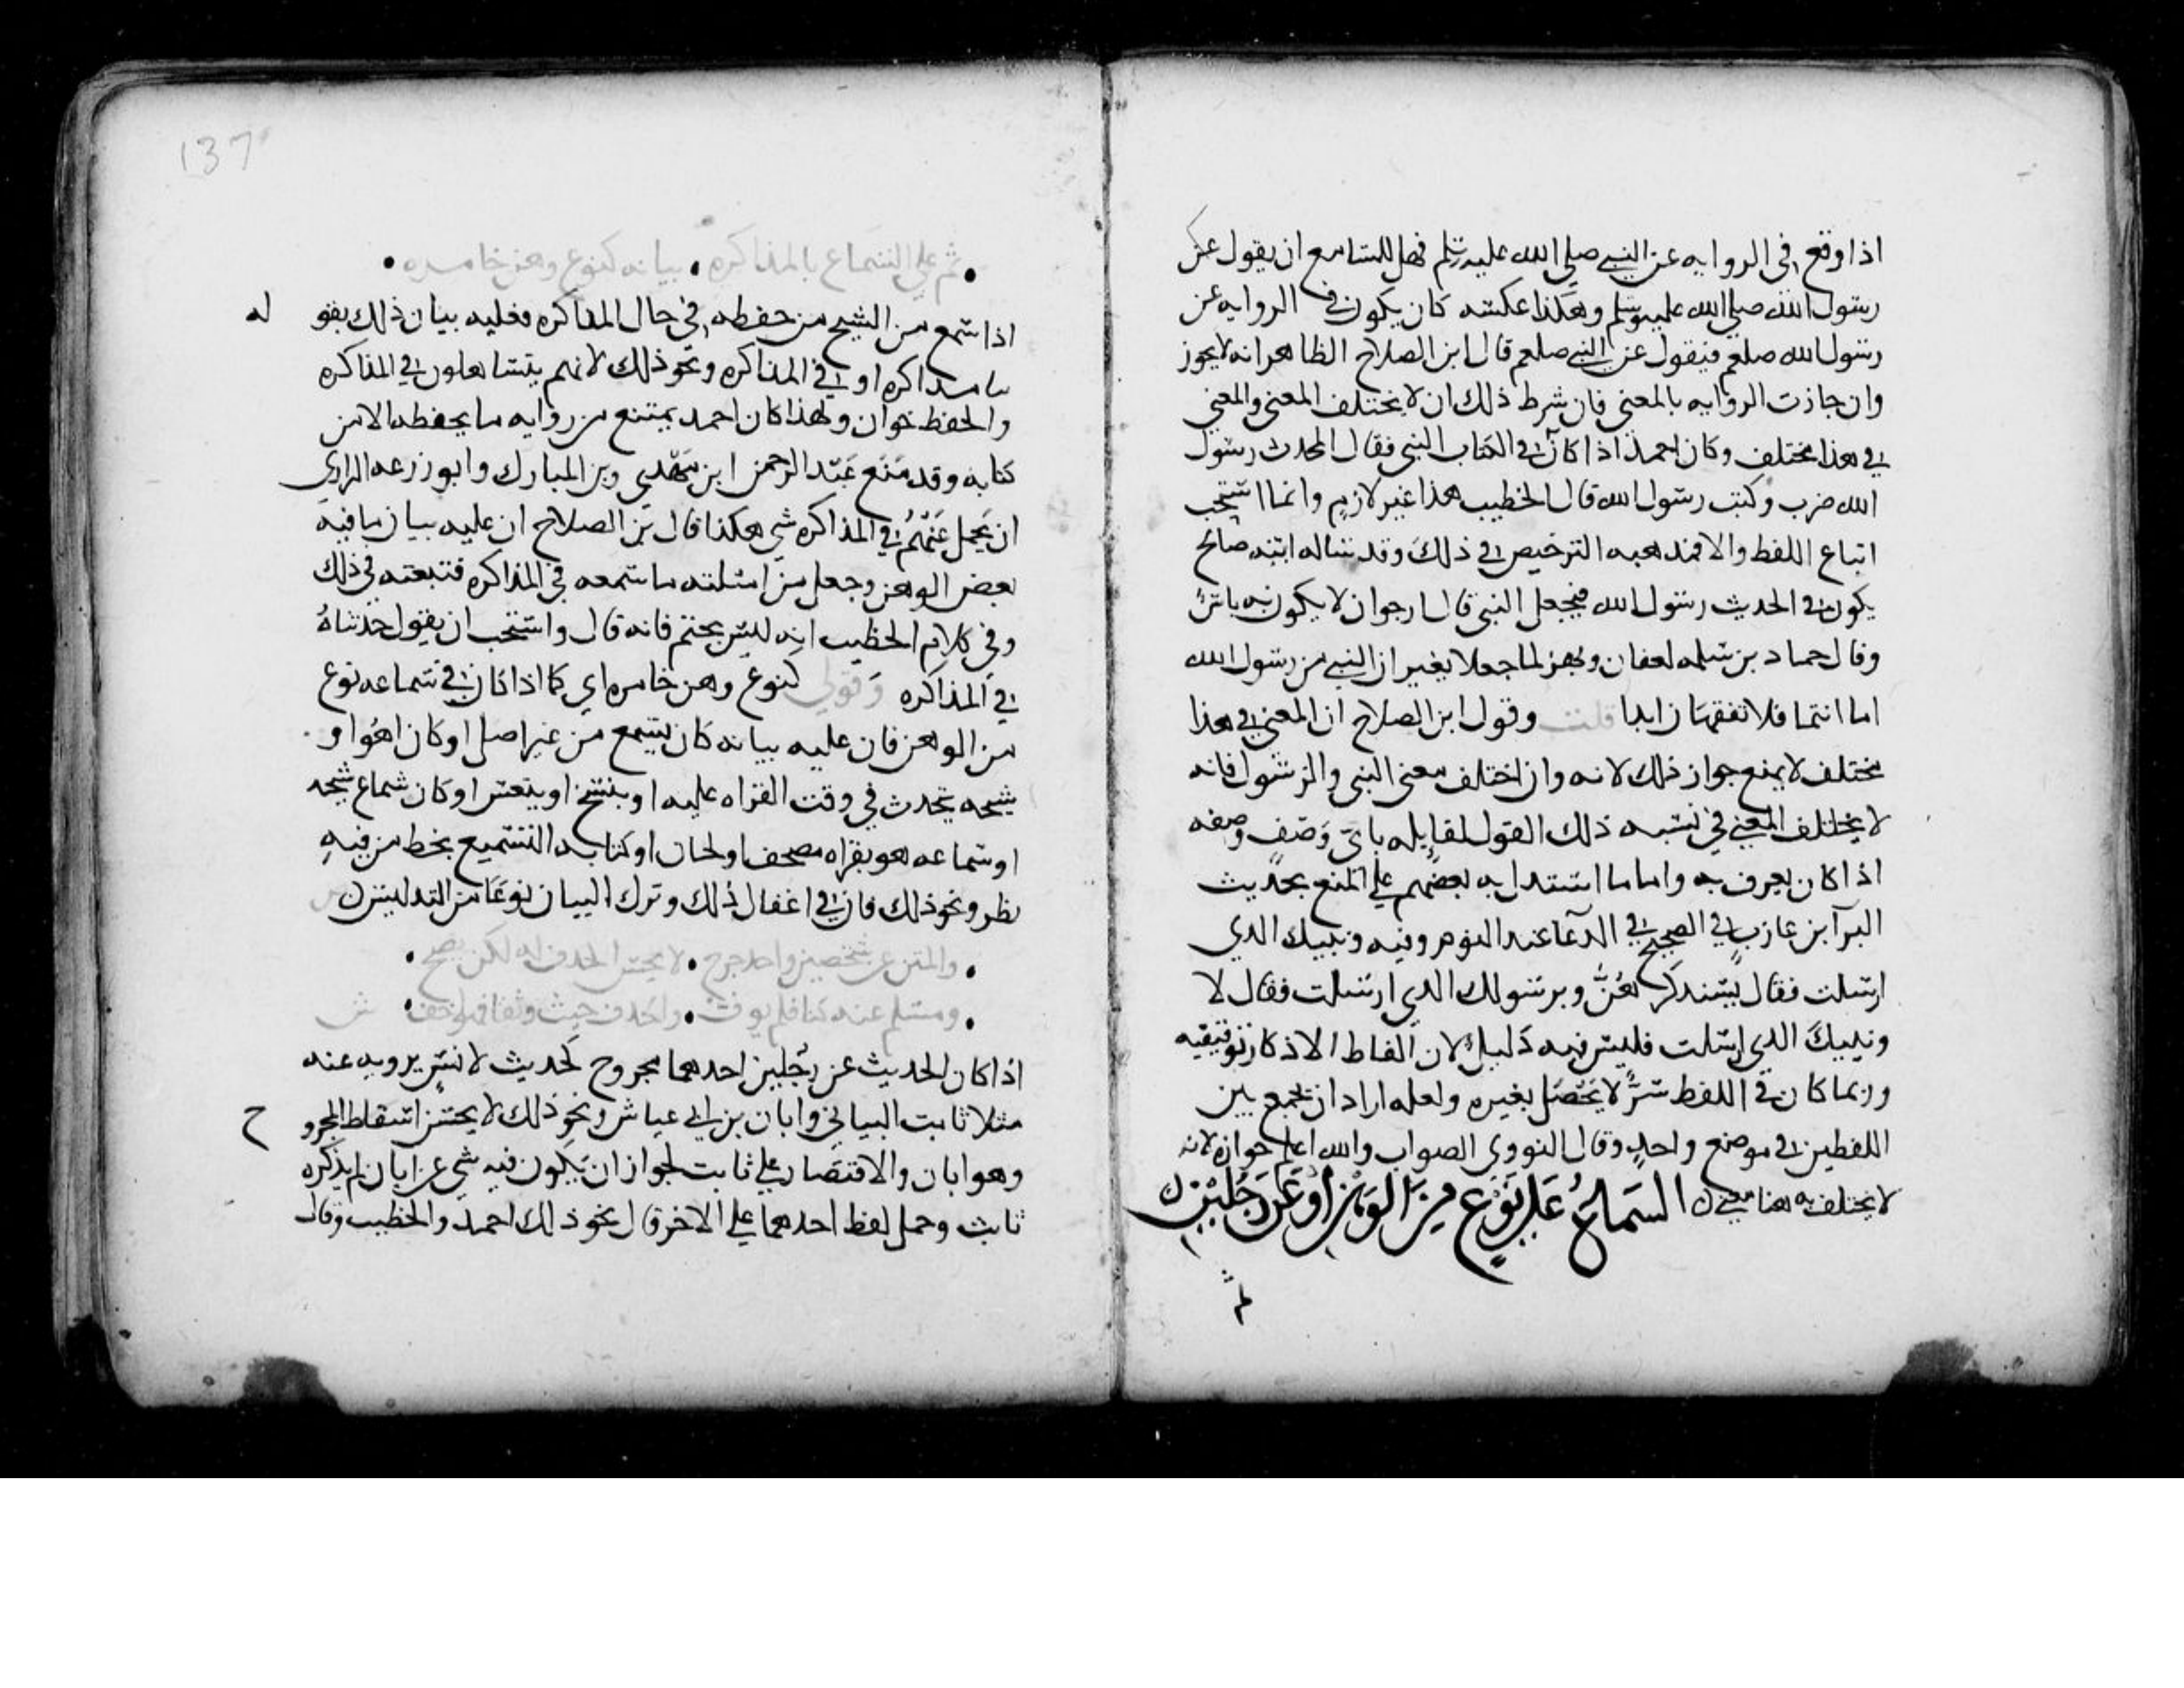 اذا وقع في الروايه عن النبي صلي الله عليه وسلم فهل للسامع ان يقول عن
رسول الله صلي الله عليه وسلم وهكذا عكسه كان يكون في الروايه عن
رسول الله صلعم فيقول عن النبي صلعم قال ابن الصلاح الظاهر انه لا يجوز
وان جازت الروايه بالمعني فان شرط ذلك ان لا يختلف المعني والمعني
في هذا مختلف وكان احمد اذا كان في الكتاب النبي فقال المحدث رسول
الله ضرب وكتب رسول الله قال الخطيب هذا غير لازم وانما استحب
اتباع اللفظ والا فمذهبه الترخيص في ذلك وقد ساله ابنه صالح
يكون في الحديث رسول الله فيجعل النبي قال ارجو ان لا يكون به باس
وقال حماد بن سلمه لعفان وبهز لما جعلا يغيران النبي من رسول الله
اما انتما فلا تفقهان ابدا قلت وقول ابن الصلاح ان المعني في هذا
مختلف لا يمنع جواز ذلك لانه وان اختلف معني النبي والرسول فانه
لا يختلف المعني في نسبه ذلك القول لقايله باي وصف وصفه
اذا كان يعرف به واما ما استدل به بعضهم علي المنع بحديث
البرآ ابن عازب في الصحيح في الدعآ عند النوم وفيه ونبيك الذي
ارسلت فقال يستذكرهن وبرسولك الذي ارسلت فقال لا
ونبيك الذي ارسلت فليس فيه دليل لان الفاظ الاذكار توقيفيه
وربما كان في اللفظ سر لا يحصل بغيره ولعله اراد ان يجمع بين
اللفظين في موضع واحد وقال النووي الصواب والله اعلم جوازه لانه
لا يختلف به هنا معني السماع علي نوع من الوهن او عن رجلين
ثم علي السماع بالمذاكره • بيانه كنوع وهن خامره •
اذا سمع من الشيخ من حفظه في حال المذاكره فعليه بيان ذلك بقوله
مذاكره او في المذاكره ونحو ذلك لانهم يتساهلون في المذاكره
والحفظ خوان ولهذا كان احمد يمتنع من روايه ما يحفظه الا من
كتابه وقد منع عبد الرحمن ابن مهدي وبن المبارك وابو زرعه الرازي
ان يحمل عنهم في المذاكره شي هكذا قال بن الصلاح ان عليه بيان ما فيه
بعض الوهن وجعل من امثلته ما سمعه في المذاكره فتبعته في ذلك
وفي كلام الخطيب انه ليس بحتم فانه قال واستحب ان يقول حدثناه
في المذاكره وقولي كنوع وهن خامره اي كما اذا كان في سماعه نوع
من الوهن فان عليه بيانه كان يسمع من غير اصل او كان هو او
شيخه يتحدث في وقت القراه عليه او ينسخ او ينعس او كان سماع شيخه
او سماعه هو بقراه مصحف او لحان او كتابه التسميع بخط من فيه
نظر ونحو ذلك فان في اغفال ذلك وترك البيان نوعا من التدليس
• والمتن عن شخصين واحد جرح • لا يحسن الحذف له لكن يصح •
• ومسلم عنه كنا فلم يوف • والحذف حيث وثقا فهو اخف • ش
اذا كان الحديث عن رجلين احدهما مجروح كحديث لانس يرويه عنه
مثلا ثابت البناني وابان بن ابي عياش ونحو ذلك لا يحسن اسقاط المجروح
وهو ابان والاقتصار علي ثابت لجواز ان يكون فيه شي عن ابان لم يذكره
ثابت وحمل لفظ احدهما علي الاخر قال نحو ذلك احمد والخطيب وقال
137